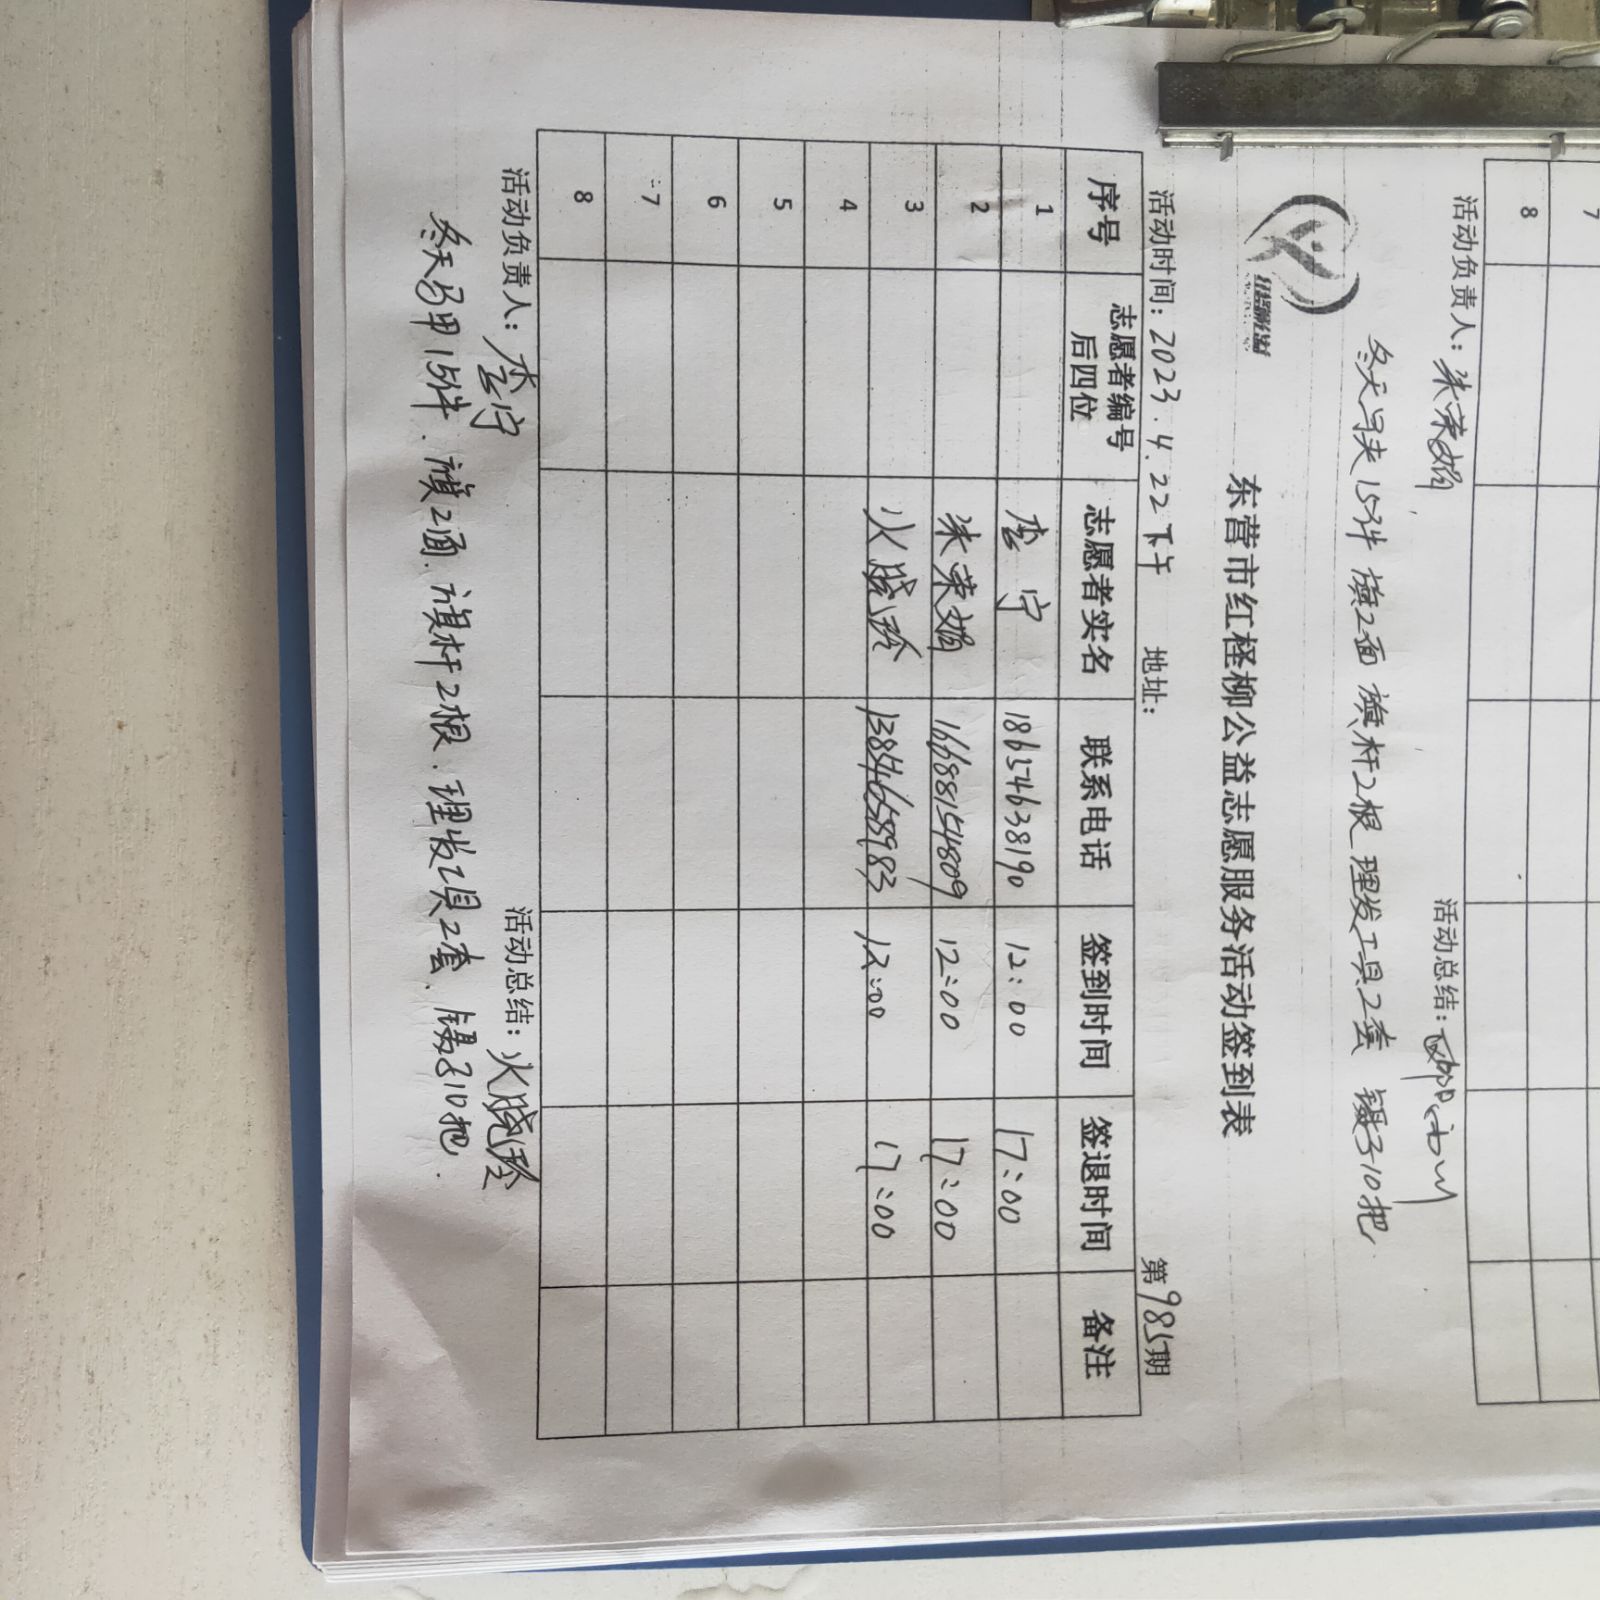 7
8
活动负责人：朱荣娟 活动总结：
冬天马夹15件 旗2面 旗杆2根 理发工具2套 镊子10把
红柽柳公益
东营市红柽柳公益志愿服务活动签到表
活动时间：2023.4.22下午 地址： 第985期
序号 志愿者编号后四位 志愿者实名 联系电话 签到时间 签退时间 备注
1 李宁 18654638190 12:00 17:00
2 朱荣娟 16688154809 12:00 17:00
3 火晓玲 13846658983 12:00 17:00
4
5
6
7
8
活动负责人：李宁 活动总结：火晓玲
冬天马甲15件、旗2面、旗杆2根、理发工具2套、镊子10把.